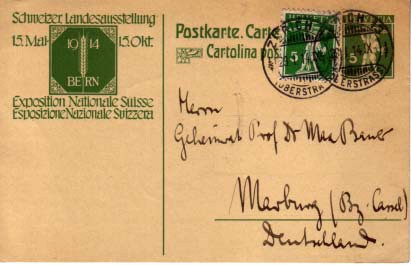 Schweizer. Landesausstellung
15. Mai- 15. Okt.
19 14
BERN
Exposition Nationale Suisse
Esposizione Nazionale Svizzera
Postkarte. Carte
Cartolina pos
5 5
Herrn
Geheimrat Prof Dr Max Bauer
Marburg (Bz. Cassel)
Deutschland.